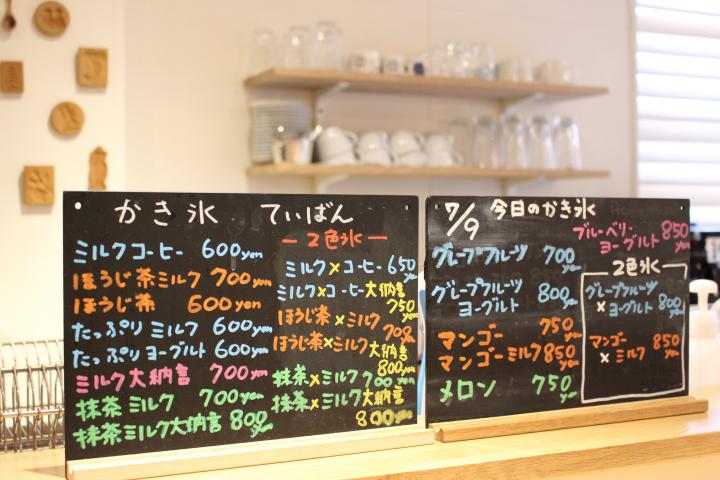 かき氷 ていばん
ミルクコーヒー 600yen
ほうじ茶ミルク 700yen
ほうじ茶 600yen
たっぷりミルク 600yen
たっぷりヨーグルト600yen
ミルク大納言 700yen
抹茶ミルク 700yen
抹茶ミルク大納言 800yen
ー2色氷ー
ミルク×コーヒー 650yen
ミルク×コーヒー大納言
750yen
ほうじ茶×ミルク
700yen
ほうじ茶×ミルク
大納言
800yen
抹茶×ミルク
700yen
抹茶×ミルク大納言
800yen
7/9 今日のかき氷
グレープフルーツ 700yen
グレープフルーツ
ヨーグルト 800yen
マンゴー 750yen
マンゴーミルク850yen
メロン 750yen
ブルーベリー
ヨーグルト 850yen
2色氷
グレープフルーツ
×ヨーグルト 800yen
マンゴー
×ミルク 850yen